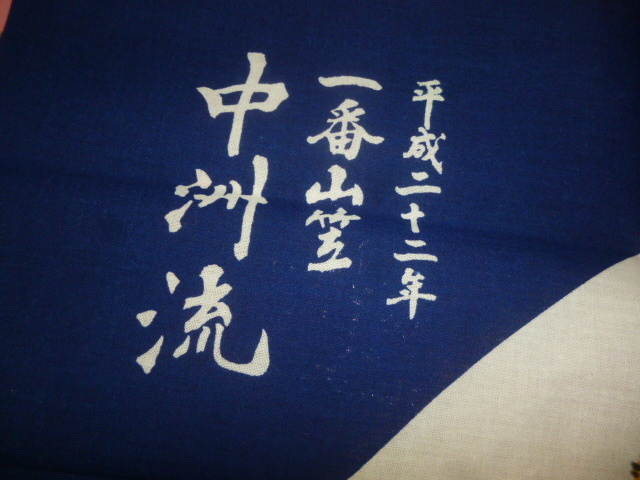 平成二十二年
一番山笠
中洲流